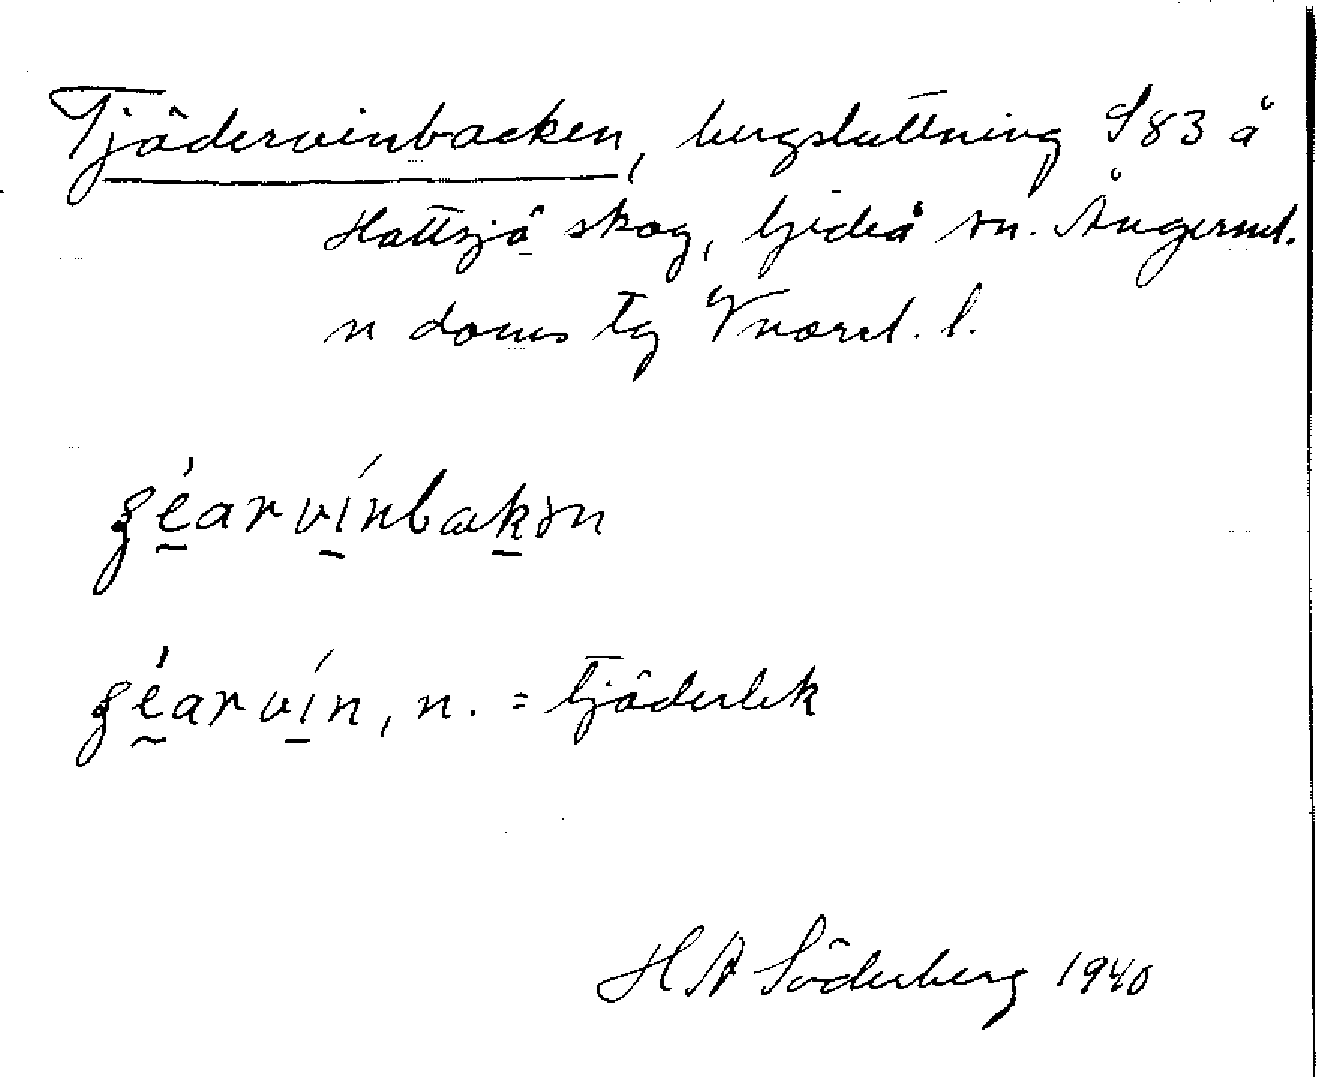 Tjädervinbacken, bergsluttning S 83 å
Hattsjö skog, Gideå sn. Ångerml.
n doms tg Vnorrl. l.
éarvínbakən
éarvín, n. = tjäderlek
H A Söderberg 1940